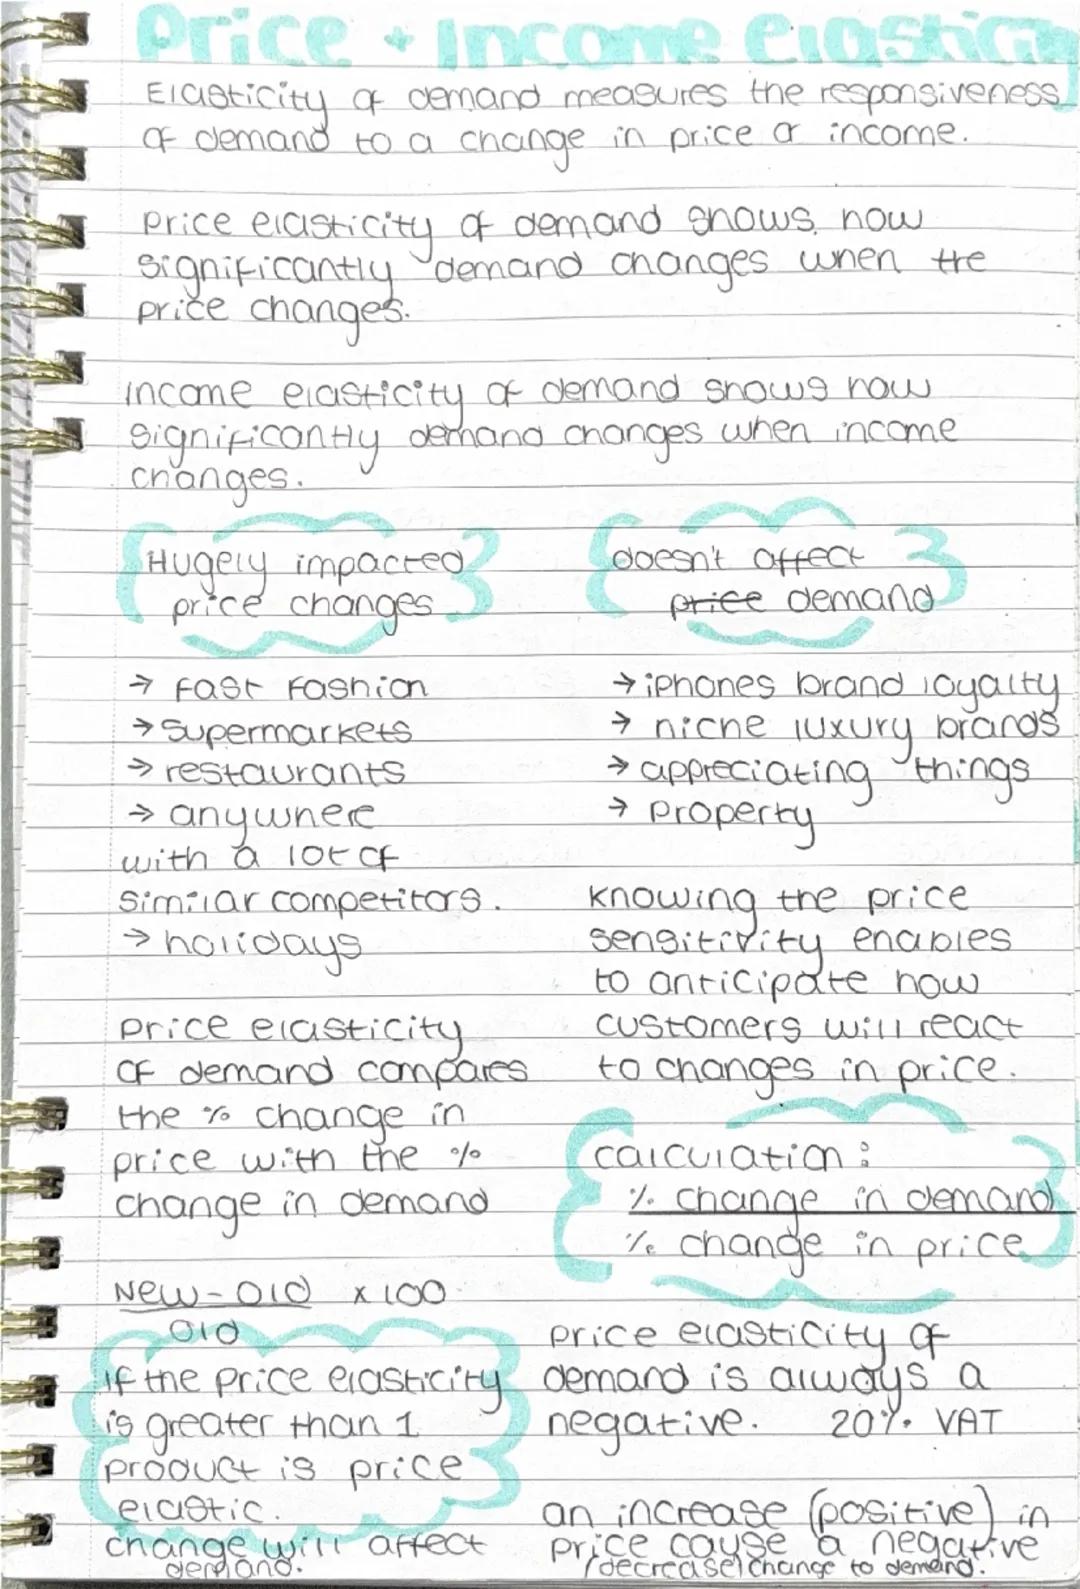 Price + Income elasticity
Elasticity of demand measures the responsiveness
of demand to a change in price or income.
Price elasticity of demand shows how
significantly demand changes when the
price changes.
Income elasticity of demand shows how
significantly demand changes when income
changes.
Hugely impacted
price changes
→ fast fashion
→ supermarkets
→ restaurants
→ anywhere
with a lot of
similar competitors.
→ holidays
Price elasticity
of demand compares
the % change in
price with the %
change in demand
New - Old x 100
Old
if the price elasticity
is greater than 1
product is price
elastic.
change will affect
demand.
doesn't affect
price demand
→ iphones brand loyalty
→ niche luxury brands
→ appreciating things
→ property
knowing the price
sensitivity enables
to anticipate how
customers will react
to changes in price.
calculation:
% change in demand
% change in price
price elasticity of
demand is always a
negative. 20% VAT
an increase (positive) in
price cause a negative
(decrease) change to demand.